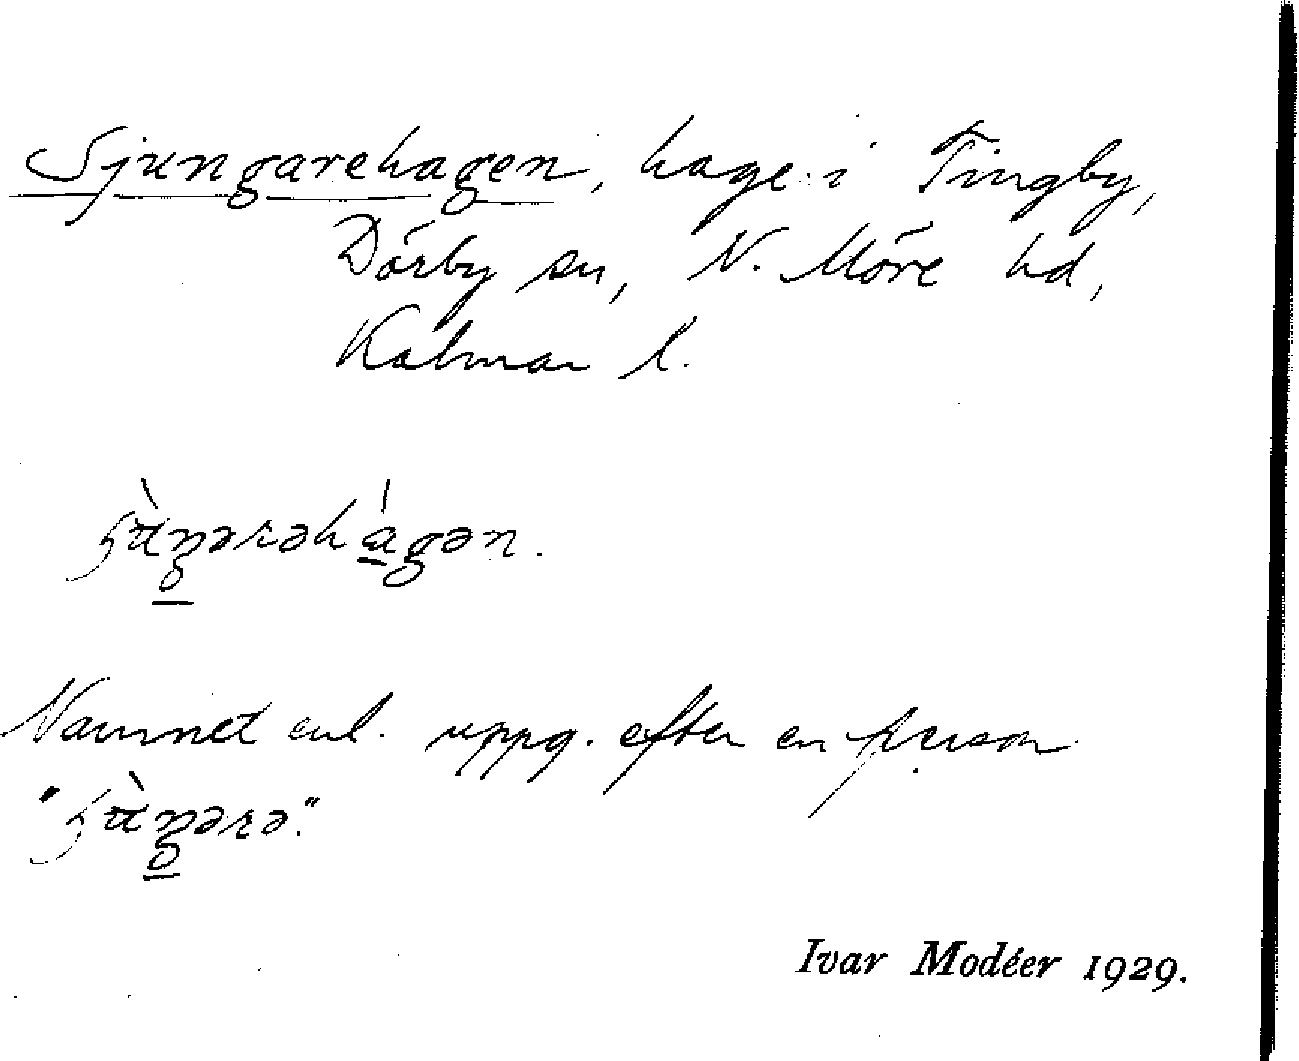 Sjungarehagen, hage i Tingby,
Dörby sn, N. Möre hd,
Kalmar l.
Namnet enl. uppg. efter en person
Ivar Modéer 1929.